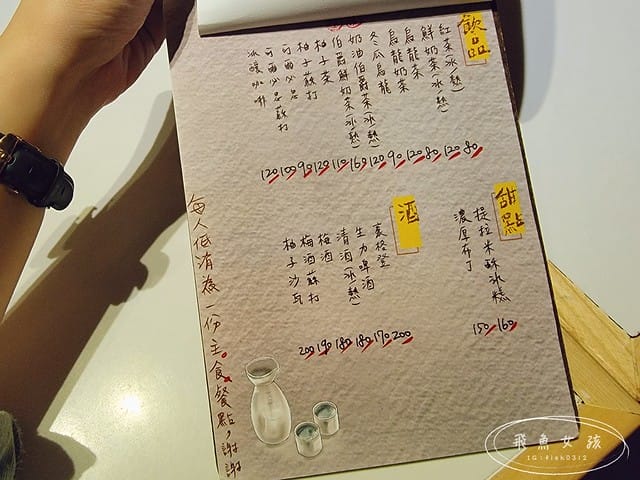 飲品
紅茶(冰/熱)
鮮奶茶(冰/熱)
烏龍茶
烏龍奶茶
冬瓜烏龍
奶油伯爵茶(冰/熱)
伯爵鮮奶茶(冰/熱)
柚子茶
柚子蘇打
可爾必思
可爾必思蘇打
冰暖咖啡
80
120
80
120
90
120
160
110
120
90
100
120
甜點
提拉米酥冰糕
濃厚布丁
160
150
酒
生力啤酒
清酒(冰/熱)
梅酒
梅酒蘇打
柚子沙瓦
200
170
180
180
190
200
每人低消為一份主食餐點，謝謝
飛魚女孩
IG:fish0312